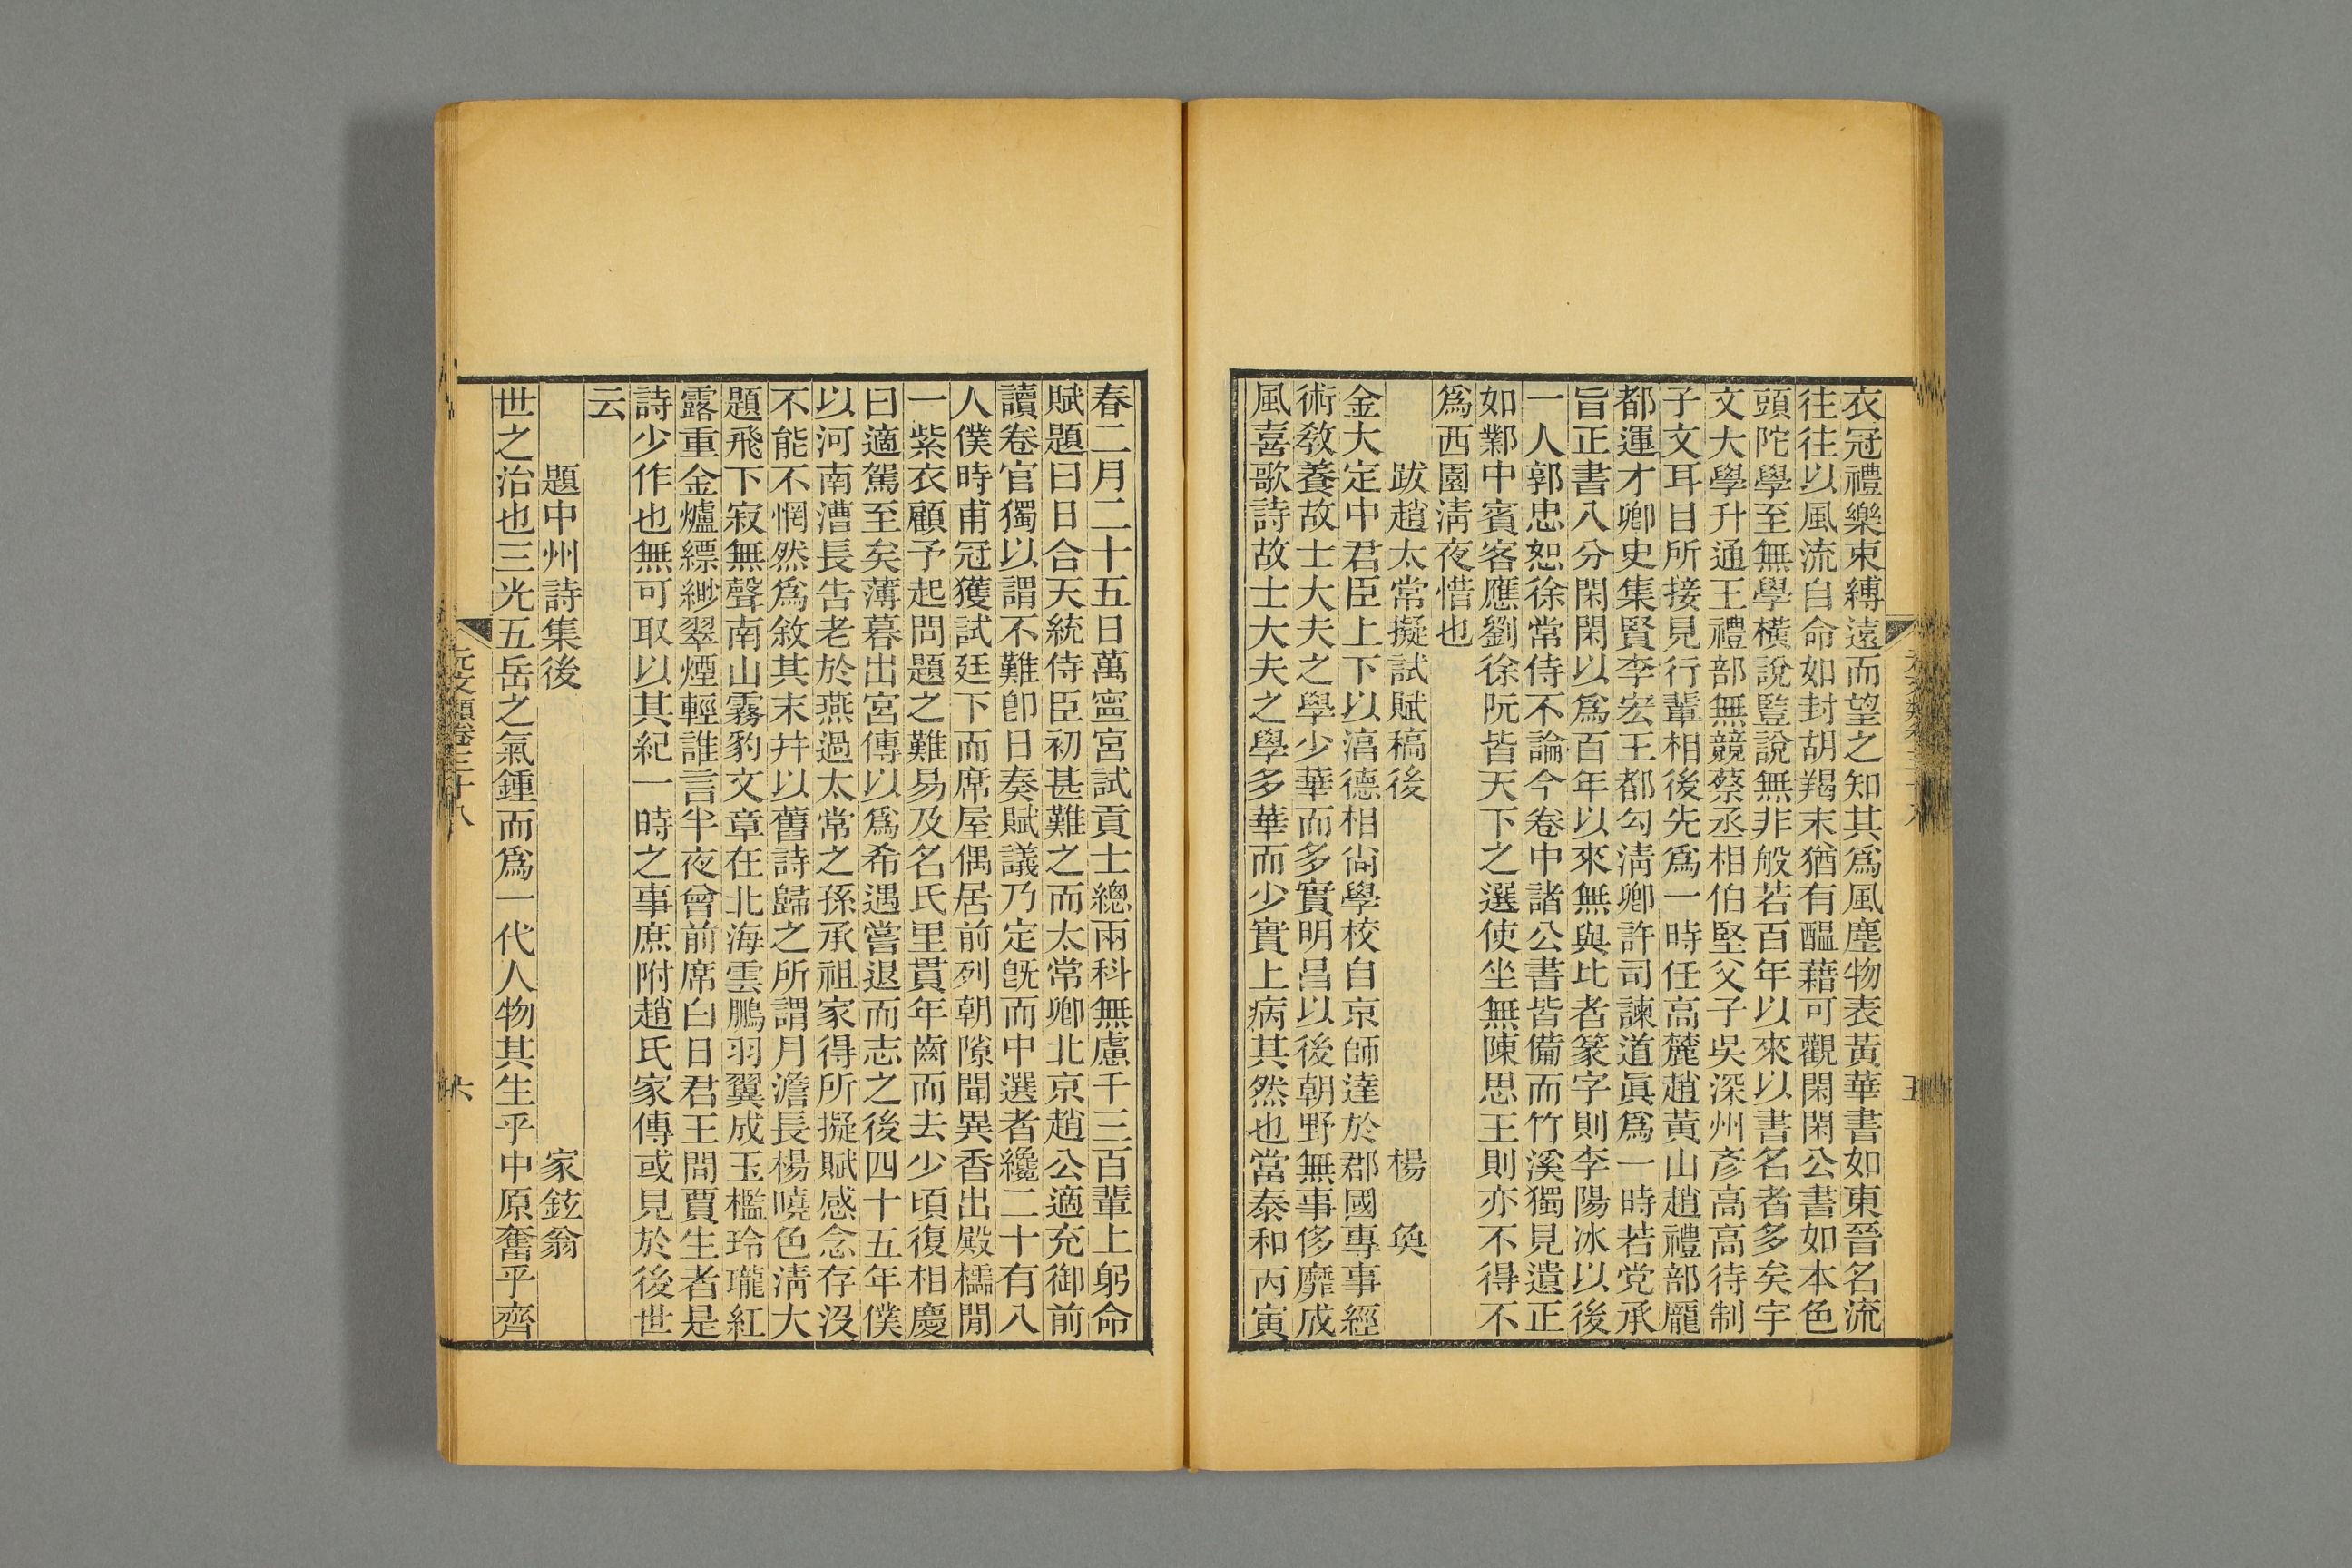 衣冠禮樂束縛遠而望之知其爲風塵物表黃華書如東晉名流
往往以風流自命如封胡羯末猶有醞藉可觀閑閑公書如本色
頭陀學至無學橫說豎說無非般若百年以來以書名者多矣宇
文大學升通王禮部無競蔡丞相伯堅父子吳深州彥高高待制
子文耳目所接見行輩相後先爲一時任高麓趙黃山趙禮部龎
都運才卿史集賢李宏王都勾淸卿許司諫道眞爲一時若党承
旨正書八分閑閑以爲百年以來無與比者篆字則李陽冰以後
一人郭忠恕徐常侍不論今卷中諸公書皆備而竹溪獨見遺正
如鄴中賓客應劉徐阮皆天下之選使坐無陳思王則亦不得不
爲西園淸夜惜也
跋趙太常擬試賦稿後 楊奐
金大定中君臣上下以湻德相尙學校自京師達於郡國專事經
術敎養故士大夫之學少華而多實明昌以後朝野無事侈靡成
風喜歌詩故士大夫之學多華而少實上病其然也當泰和丙寅
春二月二十五日萬寍宮試貢士總兩科無慮千三百輩上躬命
賦題曰日合天統侍臣初甚難之而太常卿北京趙公適充御前
讀卷官獨以謂不難卽日奏賦議乃定旣而中選者纔二十有八
人僕時甫冠獲試廷下而席屋偶居前列朝隙聞異香出殿櫺閒
一紫衣顧予起問題之難易及名氏里貫年齒而去少頃復相慶
曰適駕至矣薄暮出宮傳以爲希遇嘗退而志之後四十五年僕
以河南漕長告老於燕過太常之孫承祖家得所擬賦感念存沒
不能不惘然爲敘其末幷以舊詩歸之所謂月澹長楊曉色淸大
題飛下寂無聲南山霧豹文章在北海雲鵬羽翼成玉檻玲瓏紅
露重金爐縹緲翠煙輕誰言半夜曾前席白日君王問賈生者是
詩少作也無可取以其紀一時之事庶附趙氏家傳或見於後世
云
題中州詩集後 家鉉翁
世之治也三光五岳之氣鍾而爲一代人物其生乎中原奮乎齊
元文類卷三十八
六